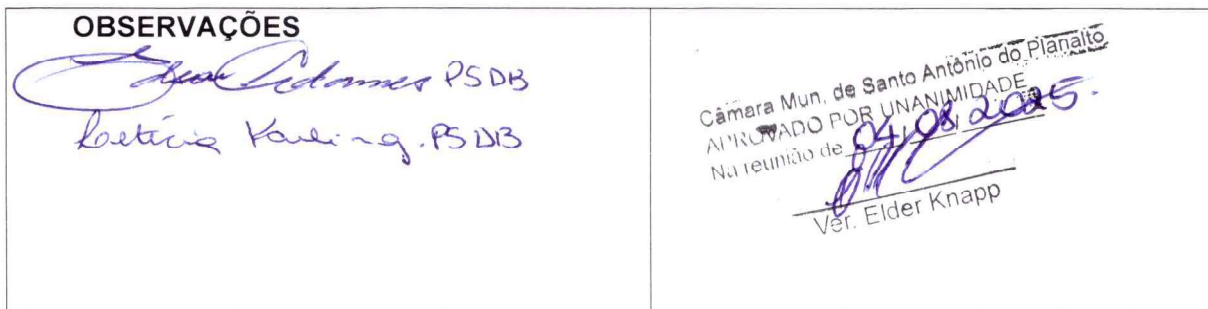 OBSERVAÇÕES
PSDB
Letícia PSDB
Câmara Mun. de Santo Antônio do Planalto
APROVADO POR UNANIMIDADE
Na reunião de 04/08/2025.
Ver. Elder Knapp